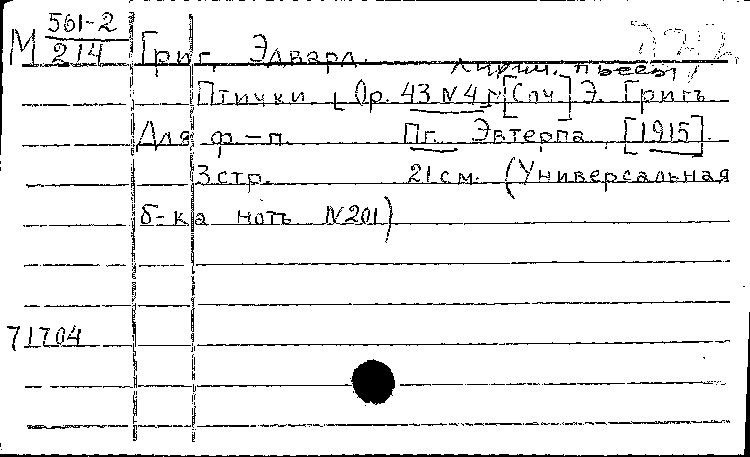 М 561-2
214
Григ, Эдвард.
Лирич. пьесы
Птички Ор. 43 N4 [Соч] Э. Григъ
Для ф-п. Пг. Эвтерпа, [1915].
3 стр. 21 см. (Универсальная
б-ка нотъ N201)
71704